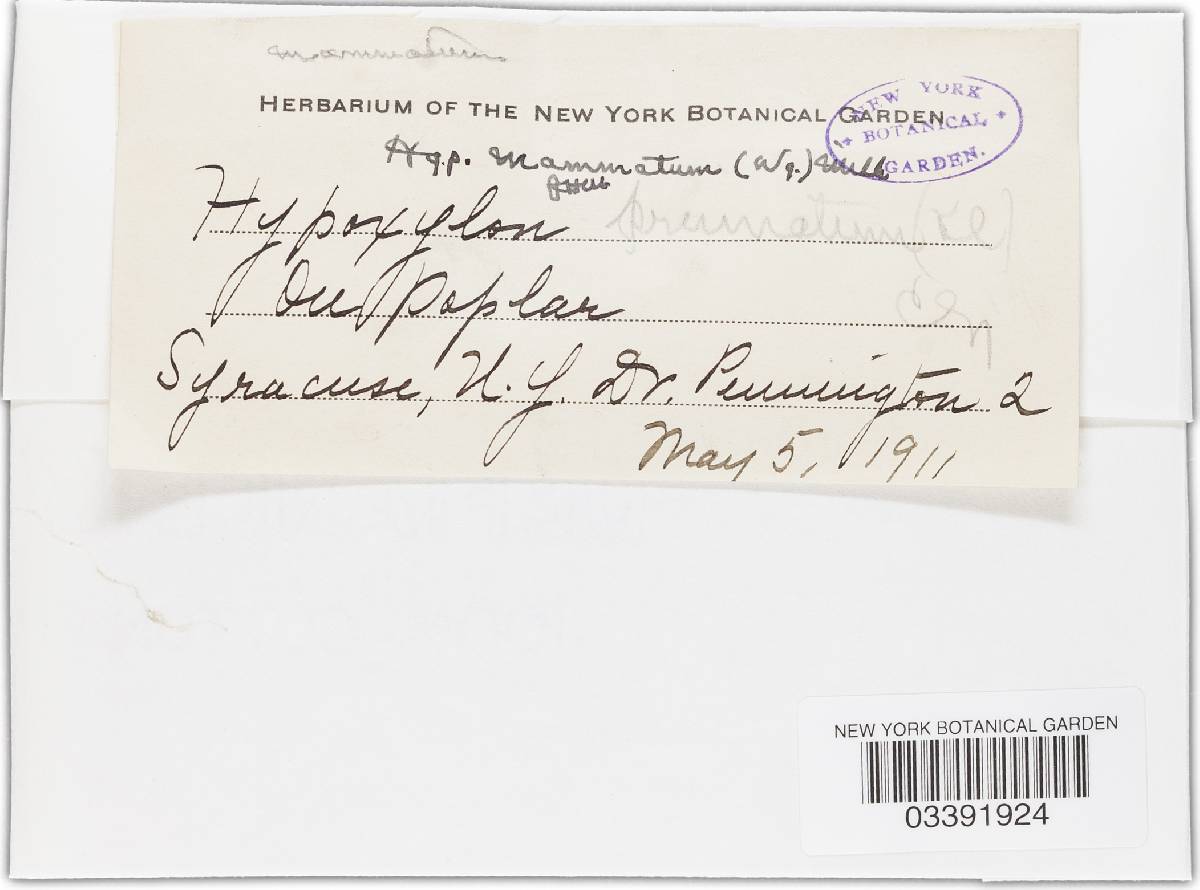 mammatum
HERBARIUM OF THE NEW YORK BOTANICAL GARDEN
NEW YORK
BOTANICAL
GARDEN.
Hyp. mammatum (Wg.) Mill
JHM
Hypoxylon pruinatum (Kl)
On Poplar
Syracuse, N.Y. Dr. Pennington 2
May 5, 1911
NEW YORK BOTANICAL GARDEN
03391924